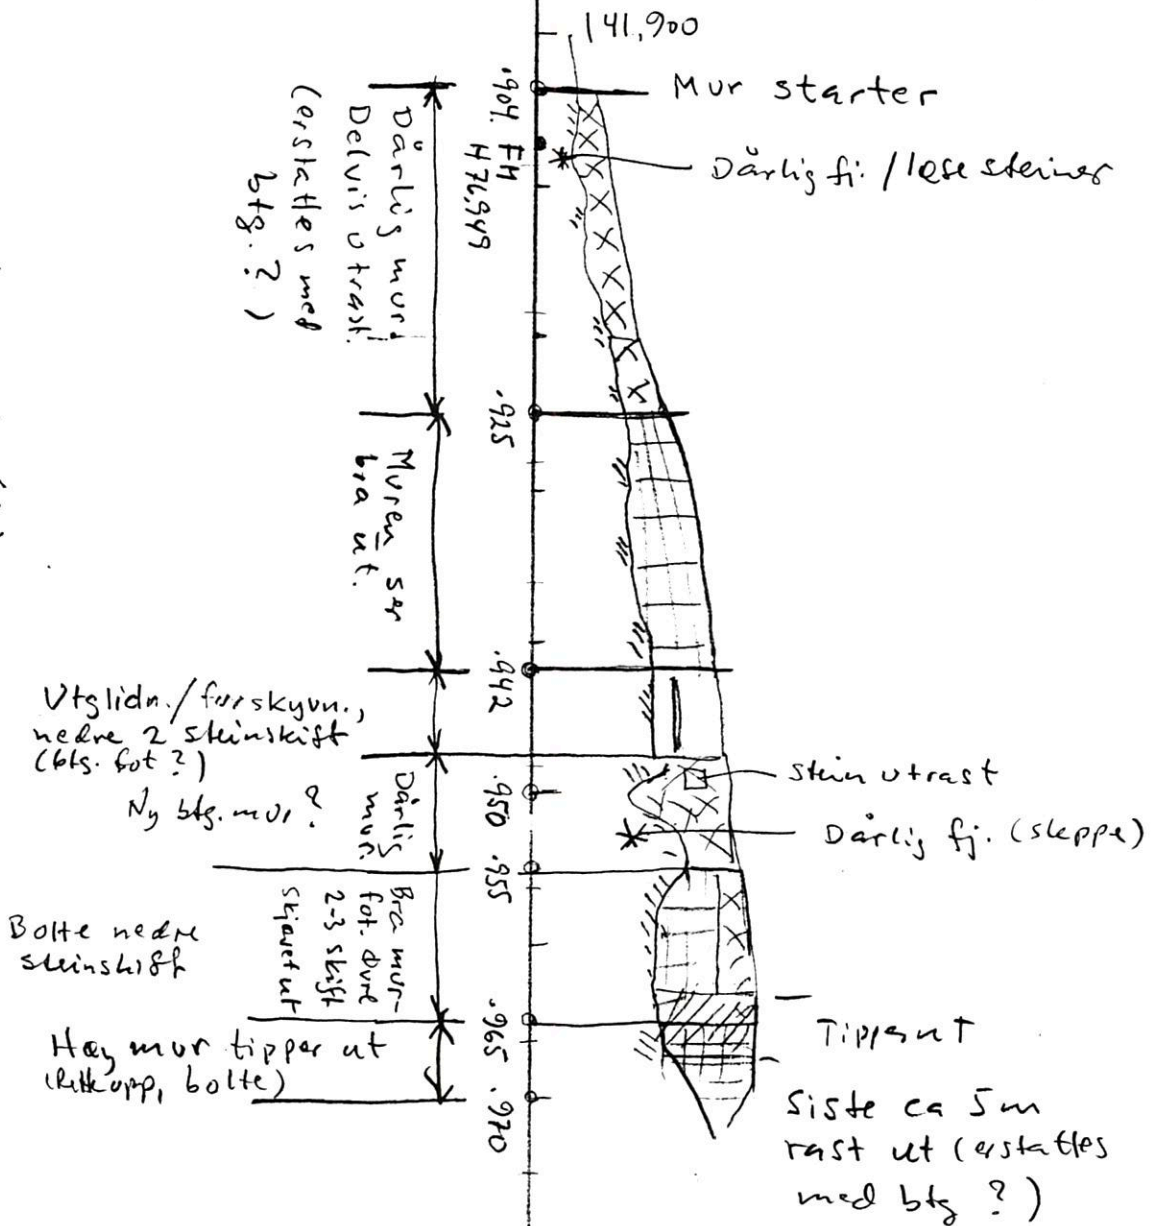 141,900
Mur starter
Dårlig fj. / løse steiner
.904
FM
H 76,949
Dårlig mur.
Delvis utrast.
(erstattes med
btg. ?)
.925
Muren ser
bra ut.
.942
Utglidn./forskyvn.,
nedre 2 steinskift
(btg. fot ?)
Ny btg. mur ?
Dårlig
mur.
.950
stein utrast
Dårlig fj. (sleppe)
.955
Bra mur-
fot. Øvre
2-3 skift
skjøvet ut
Bolte nedre
steinskift
.965
Tipper ut
Høy mur tipper ut
(Rette opp, bolte)
.970
Siste ca 5 m
rast ut (erstattes
med btg ?)